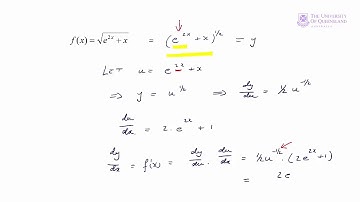 THE UNIVERSITY OF QUEENSLAND
AUSTRALIA
f(x) = √(e^{2x} + x) = (e^{2x} + x)^{1/2} = y
LET u = e^{2x} + x
⇒ y = u^{1/2} ⇒ dy/du = 1/2 u^{-1/2}
du/dx = 2 · e^{2x} + 1
dy/dx = f'(x) = dy/du · du/dx = 1/2 u^{-1/2} · (2e^{2x} + 1)
= 2e